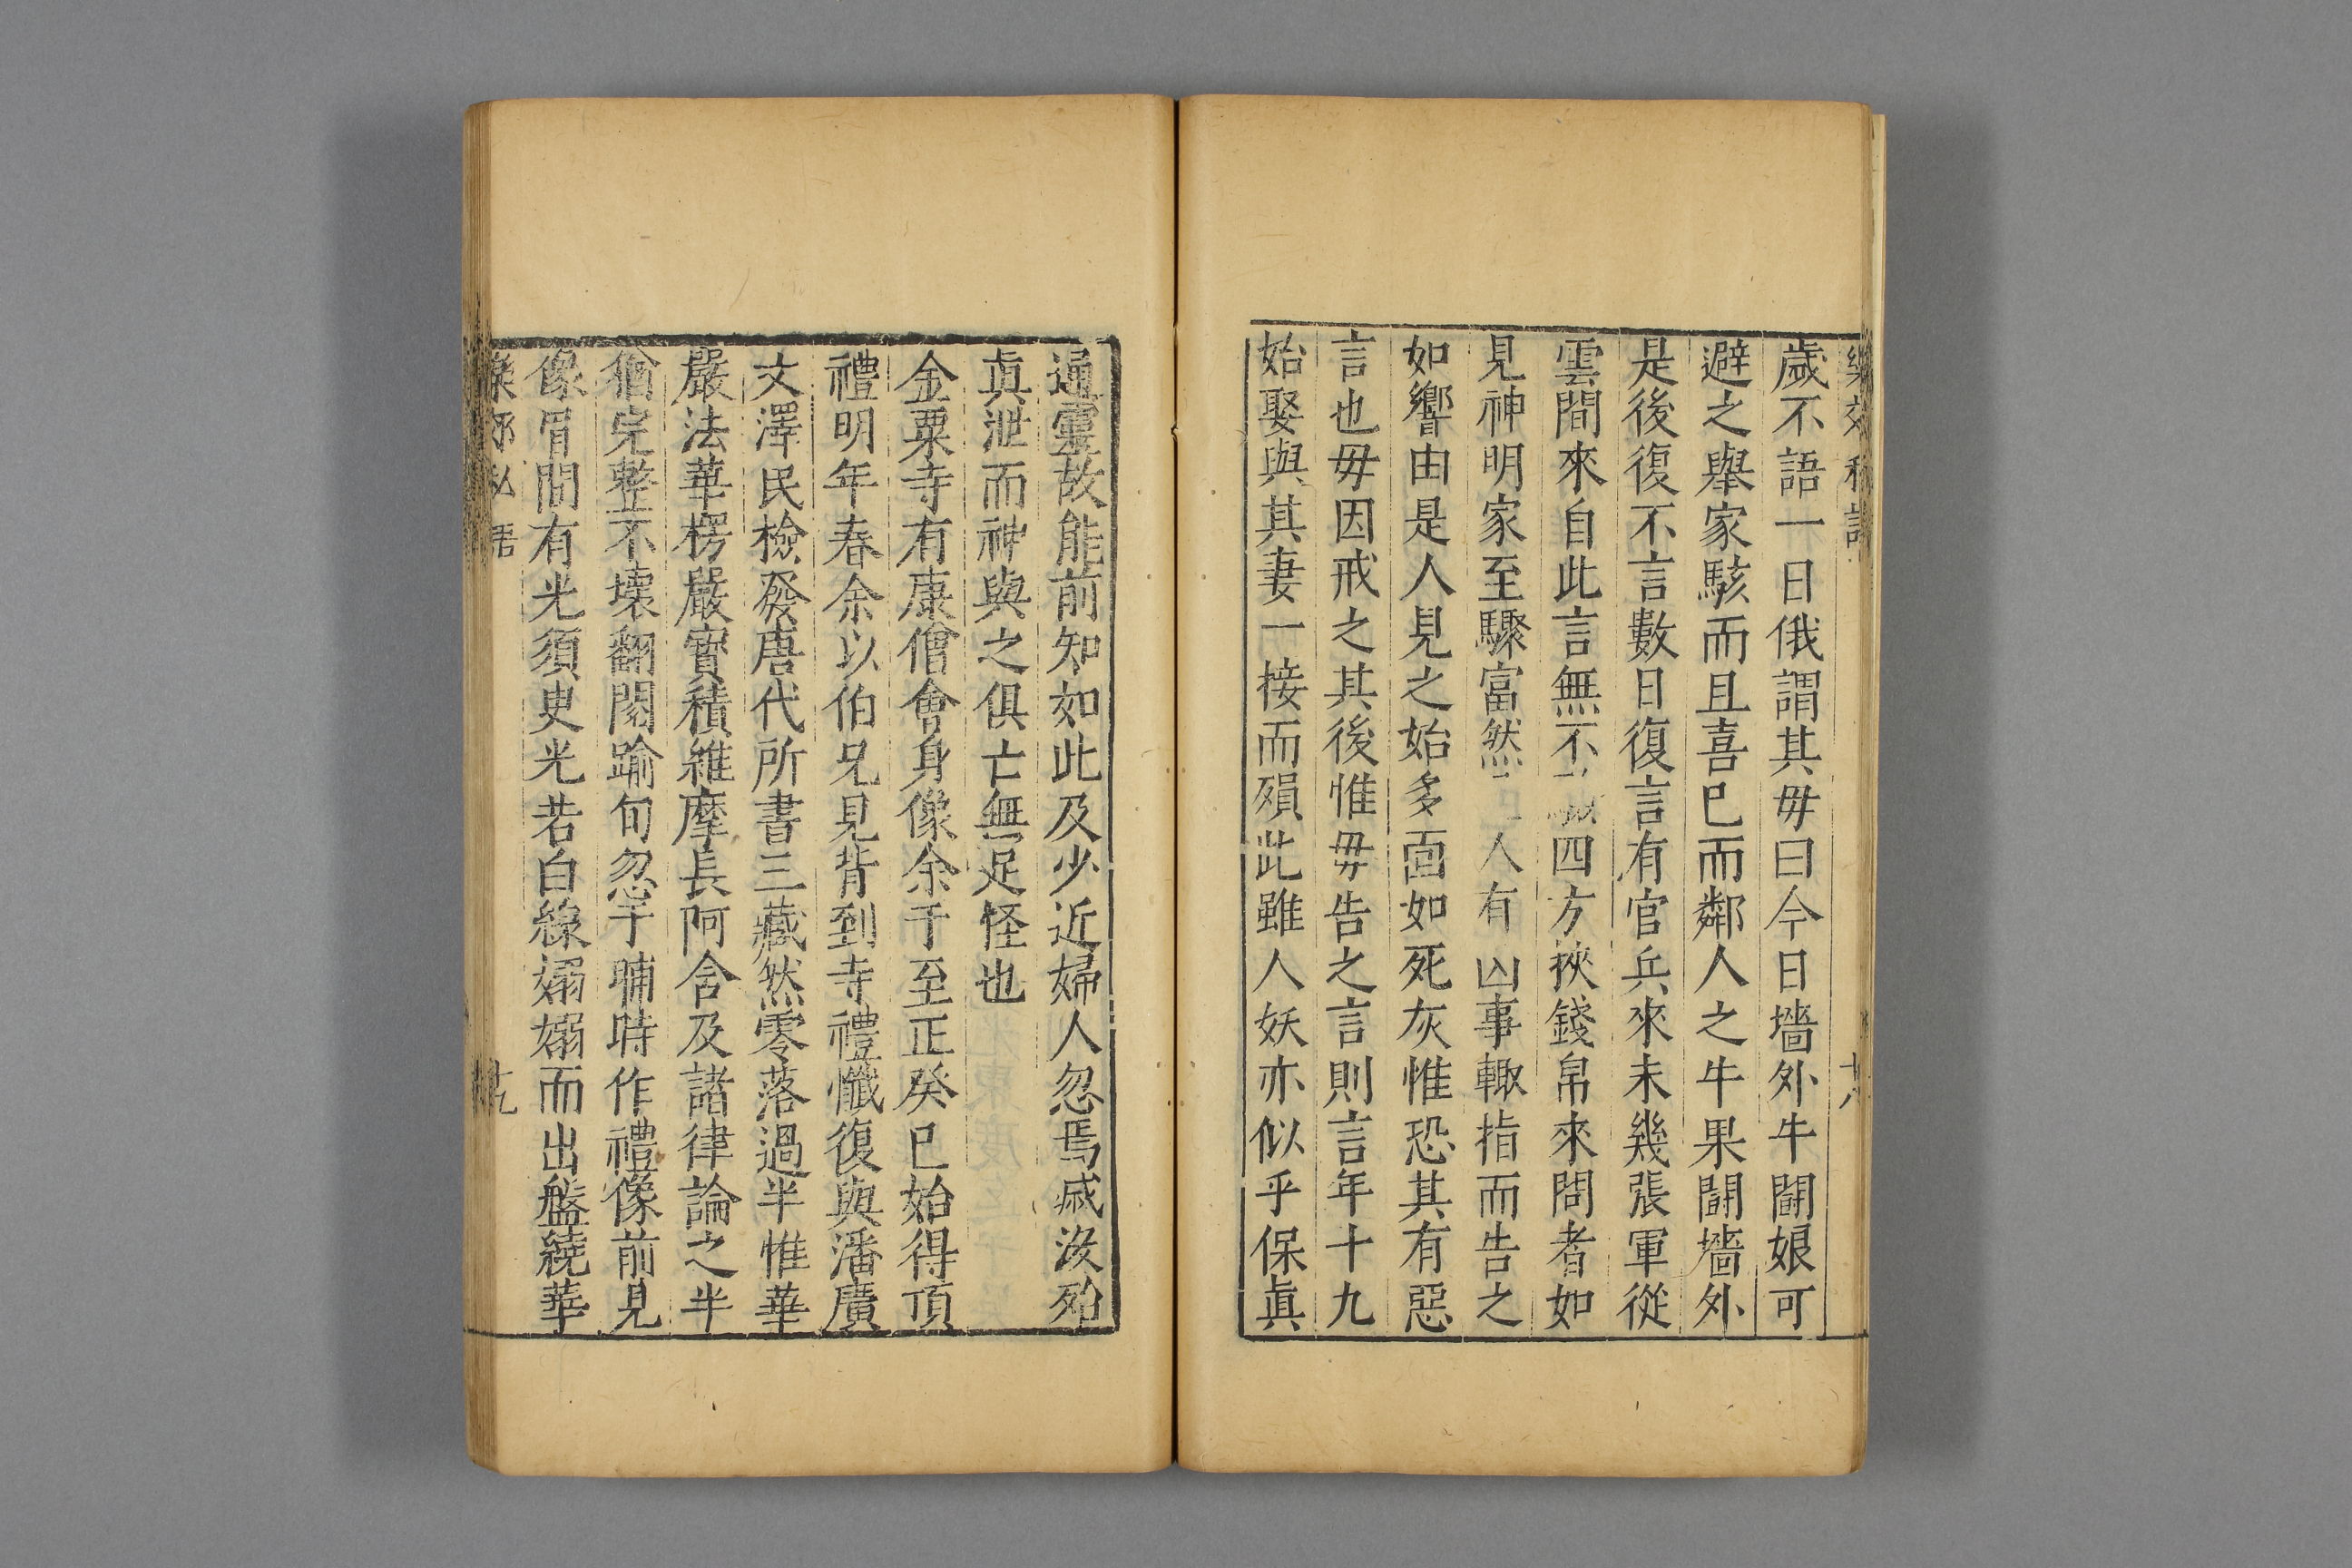 歲不語一日俄謂其毋曰今日墻外牛鬭娘可
避之舉家駭而且喜巳而鄰人之牛果鬭墻外
是後復不言數日復言有官兵來未幾張軍從
雲間來自此言無不四方挾錢帛來問者如
見神明家至驟富然人有凶事輙指而告之
如響由是人見之始多面如死灰惟恐其有惡
言也毋因戒之其後惟毋告之言則言年十九
始娶與其妻一接而殞此雖人妖亦似乎保眞
通靈故能前知如此及少近婦人忽焉戚汝殆
眞泄而神與之俱亡無足怪也
金粟寺有康僧會身像余于至正癸巳始得頂
禮明年春余以伯兄見背到寺禮懺復與潘廣
文澤民檢發唐代所書三藏然零落過半惟華
嚴法華楞嚴寶積維摩長阿含及諸律論之半
猶完整不壞翻閱踰旬忽于晡時作禮像前見
像眉間有光須臾光若白線嫋嫋而出盤繞華
十九